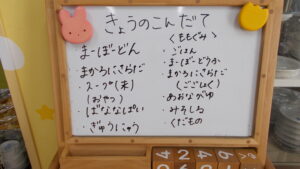 きょうのこんだて
まーぼーどん
まかろにさらだ
スープ(木)
(おやつ)
ばななぱい
ぎゅうにゅう
くももぐみゝ
・ごはん
・まーぼーどうふ
まかろにさらだ
(ごごしょく)
・みそしる
・くだもの